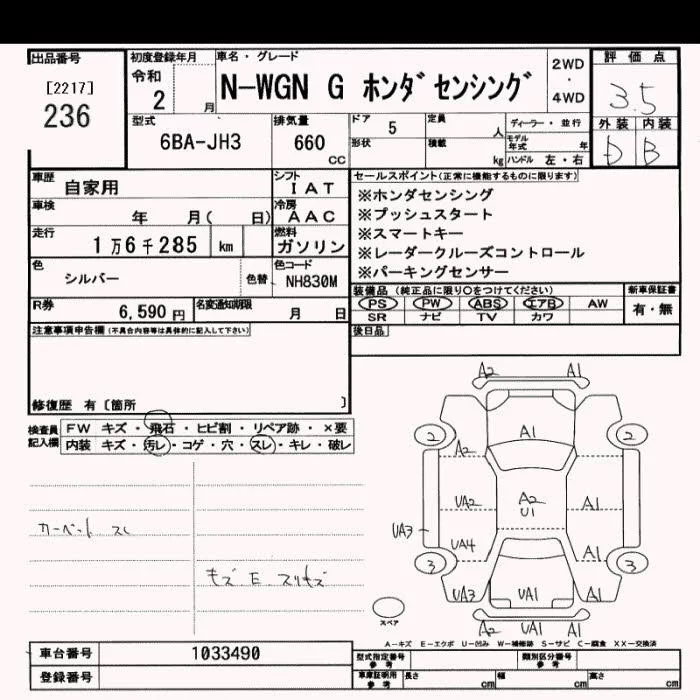 出品番号
[2217]
236
初度登録年月
令和
2 月
車名・グレード
N-WGN G ホンダセンシング
2WD
・
4WD
評価点
3.5
外装 内装
D B
型式
6BA-JH3
排気量
660
cc
ドア 5
形状
定員 人
積載 kg
ディーラー・並行
モデル年式 年
ハンドル 左・右
車歴 自家用
シフト
IAT
車検 年 月( 日)
冷房
AAC
走行 1万6千285 km
燃料
ガソリン
色 シルバー
色替
色コード
NH830M
R券 6,590 円
名変通知期限 月 日
セールスポイント(正常に機能するものに限ります)
※ホンダセンシング
※プッシュスタート
※スマートキー
※レーダークルーズコントロール
※パーキングセンサー
装備品 (純正品に限り○をつけてください)
PS PW ABS エアB AW
SR ナビ TV カワ
新車保証書
有・無
後日品
注意事項申告欄 (不具合内容等は具体的に記入して下さい)
修復歴 有〔箇所 〕
検査員記入欄
FW キズ・飛石・ヒビ割・リペア跡・×要
内装 キズ・汚レ・コゲ・穴・スレ・キレ・破レ
カーペット スレ
キズ E スリキズ
A2 A1
2 A1 2
A2
UA2 A2 A1
U1
UA3
UA4 A1
3 3
UA3 UA1 A1
A2 UA1 A1
スペア
A-キズ E-エクボ U-凹み W-補修跡 S-サビ C-腐食 XX-交換済
車台番号 1033490
登録番号
型式指定番号 参考
類別区分番号 参考
車庫証明用 参考
長さ cm 幅 cm 高さ cm